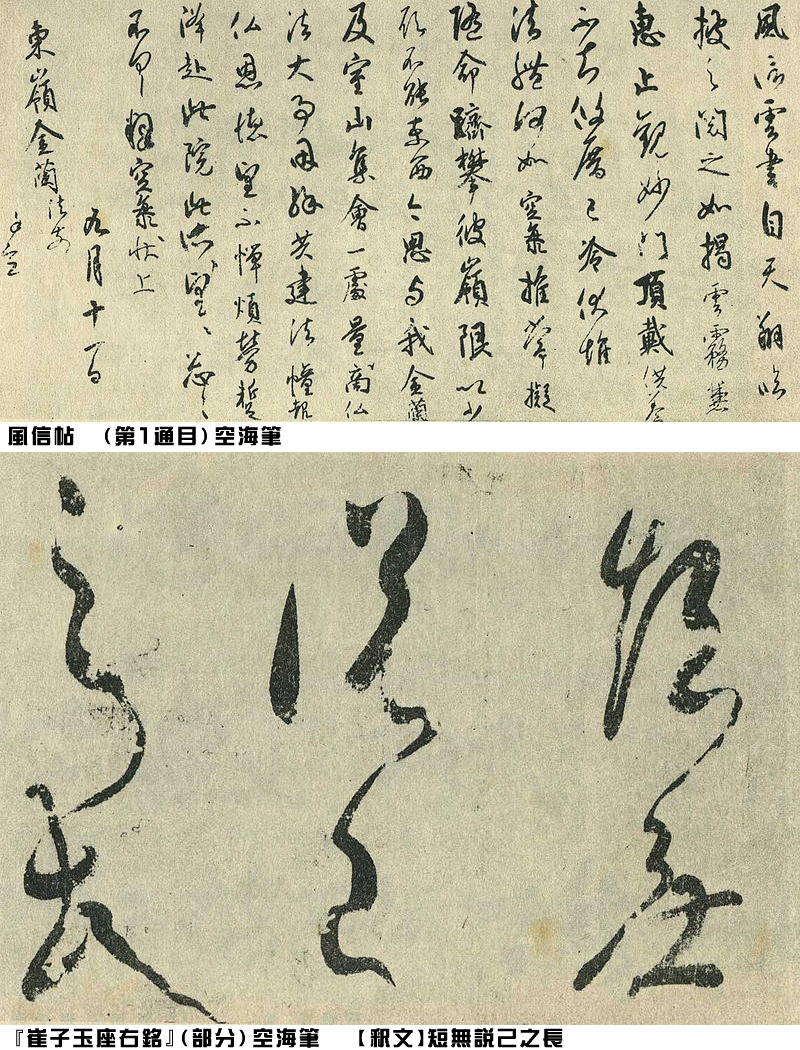 風信雲書自天翔臨
披之閲之如掲雲霧兼
恵止観妙門頂戴供養
不知攸厝已冷伏惟
法體何如空海推常擬
随命躋攀彼嶺限以少
願不能東西今思与我金蘭
及室山集會一處量商仏
法大事因縁共建法幢報
仏恩徳望不憚煩勞蹔
降赴此院此所望々忩々
不具釋空海状上
九月十一日
東嶺金蘭法前
謹空
風信帖 (第1通目)空海筆
短無
説己
之長
『崔子玉座右銘』(部分)空海筆 【釈文】短無説己之長